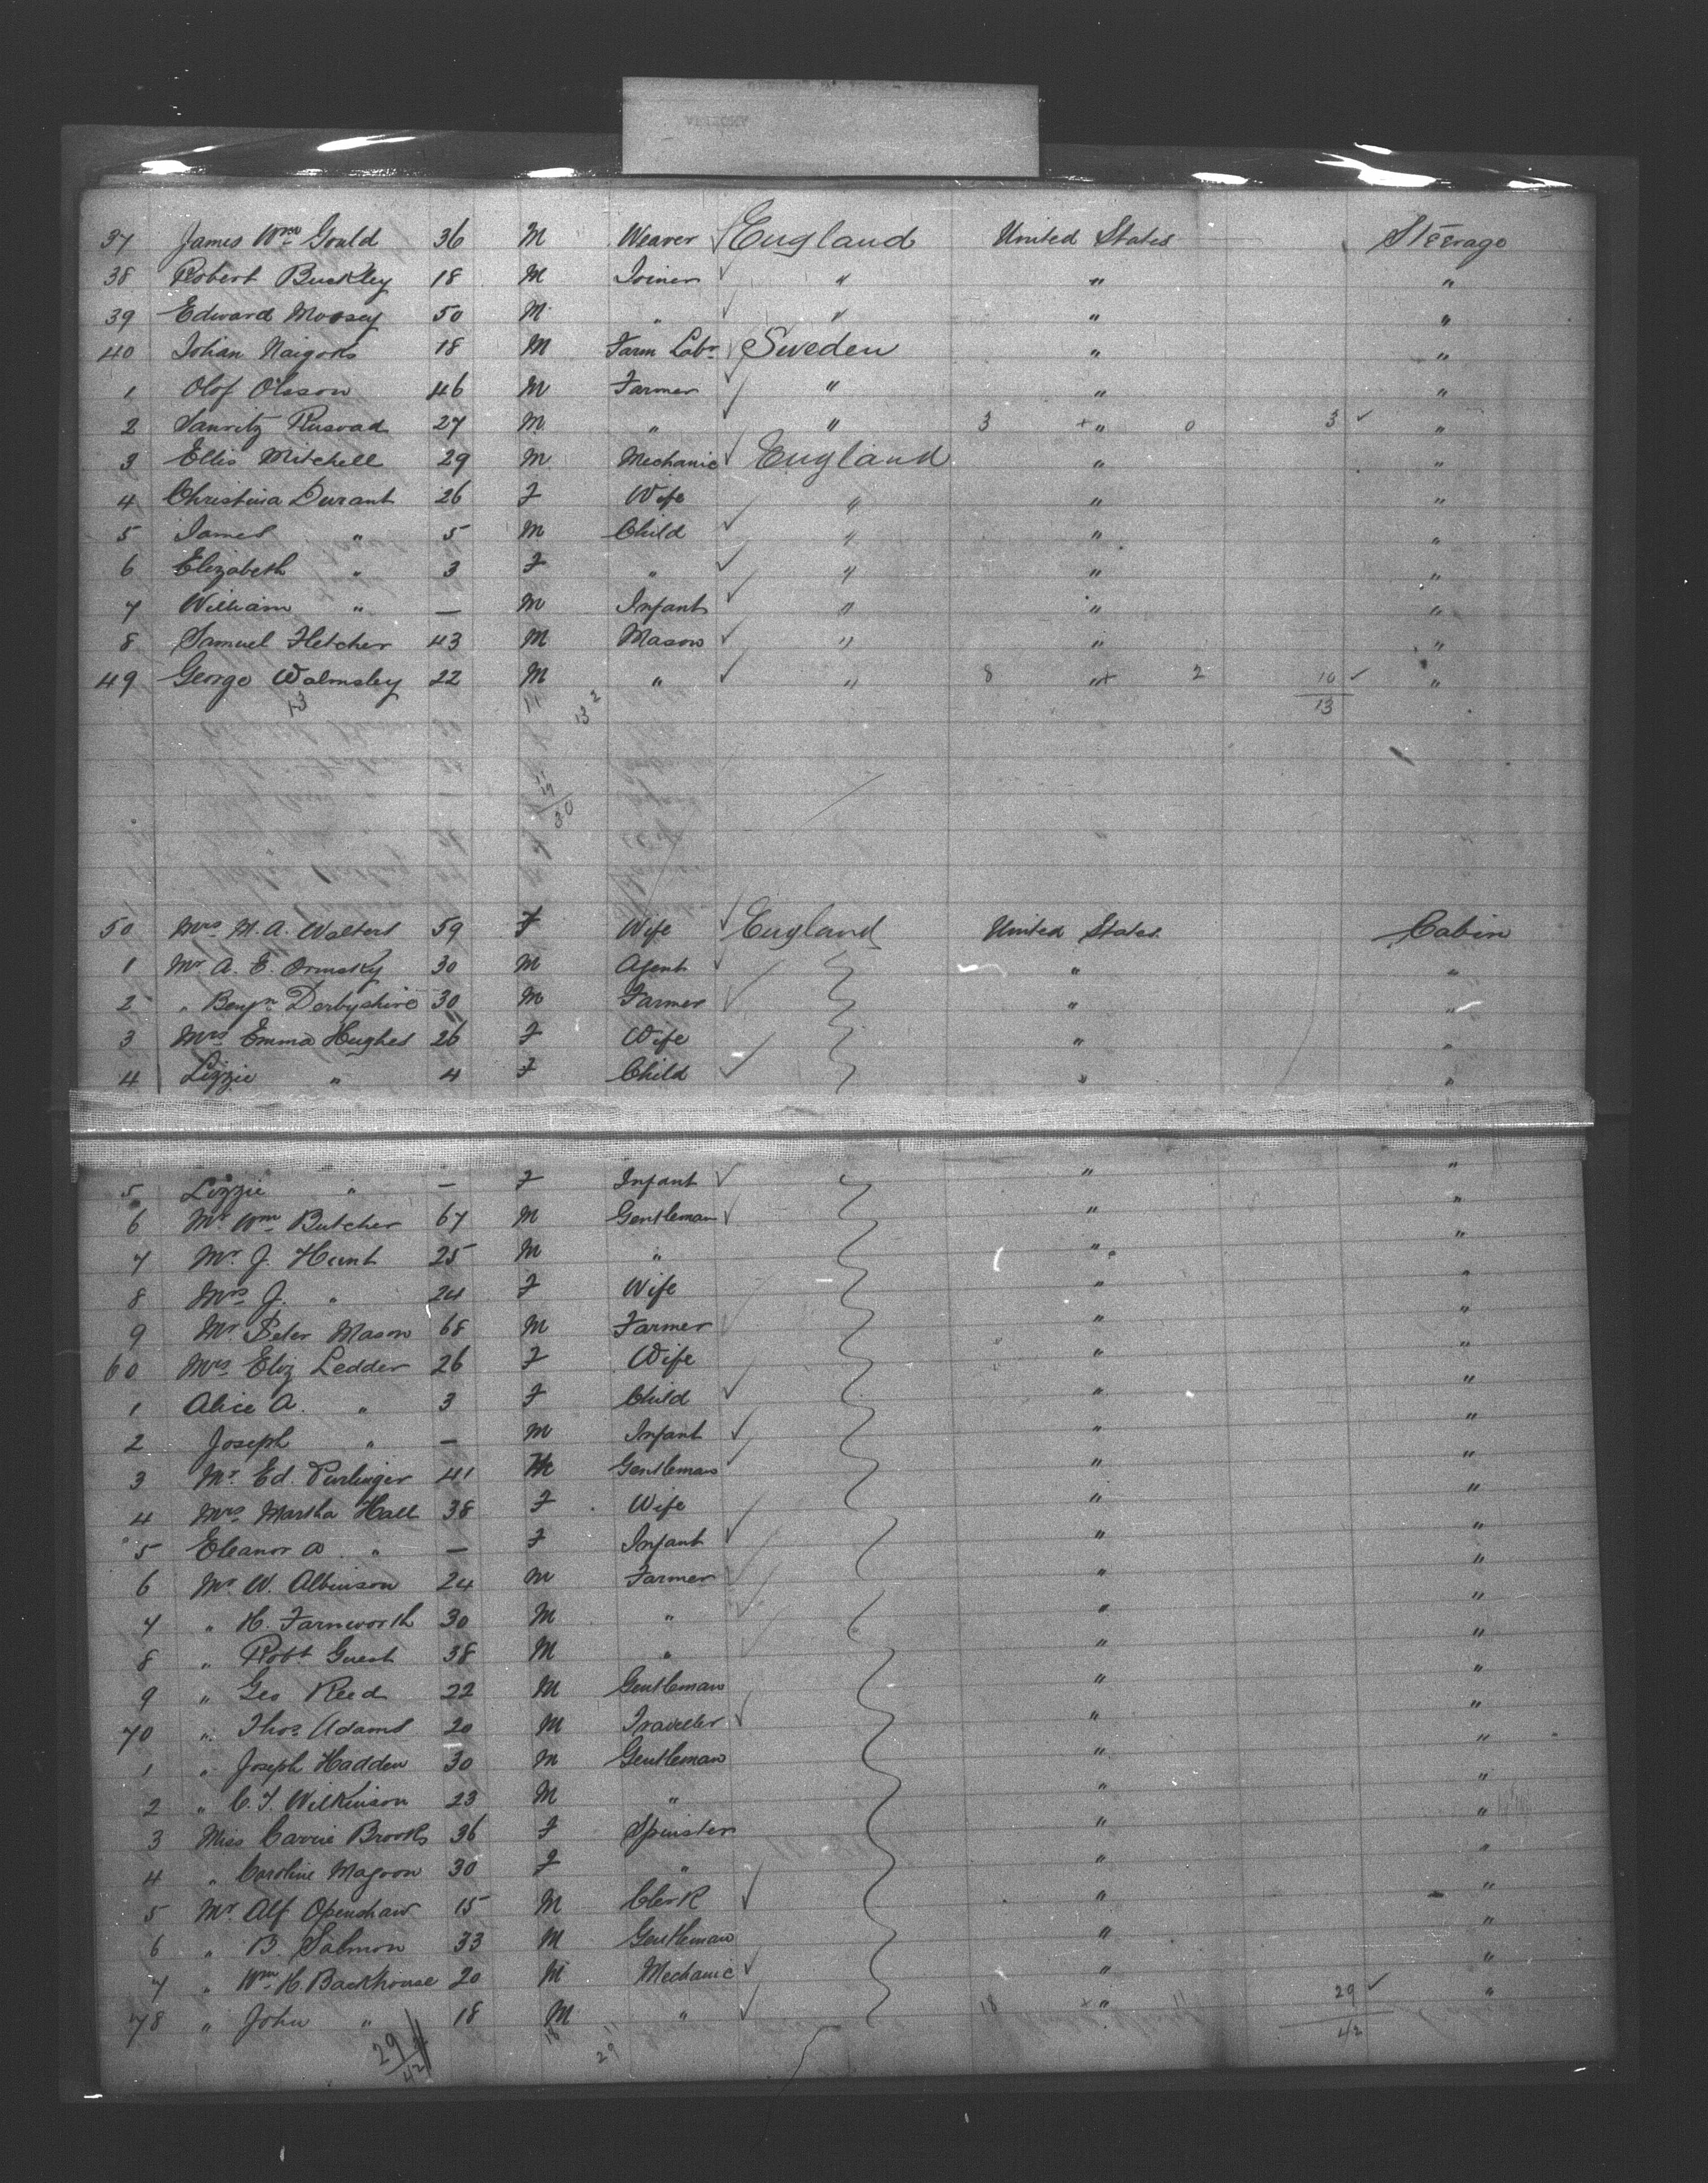 37 James Wm Gould 36 M Weaver England United States Steerage
38 Robert Buckley 18 M Joiner " " "
39 Edward Moosey 50 M " " " "
40 Johan 18 M Farm Labr Sweden " "
1 Olof Olsson 46 M Farmer " " "
2 27 M " " 3 + " 0 3 "
3 Ellis Mitchell 29 M Mechanic England " "
4 Christina Durant 26 F Wife " " "
5 James " 5 M Child " " "
6 Elizabeth " 3 F " " " "
7 William " — M Infant " " "
8 Samuel Fletcher 43 M Mason " " "
49 George Walmsley 22 M " " 8 " + 2 10 "
13 11 2 13 13
11
19
30
50 Mrs M. A. Walters 59 F Wife England United States Cabin
1 Mr A. E. Ormsky 30 M Agent " "
2 " Benjn Derbyshire 30 M Farmer " "
3 Mrs Emma Hughes 26 F Wife " "
4 Lizzie " 4 F Child " "
5 Lizzie " — F Infant " "
6 Mr Wm Butcher 67 M Gentleman " "
7 Mr J. Hunt 25 M " " "
8 Mrs J. " 24 F Wife " "
9 Mr Peter Mason 68 M Farmer " "
60 Mrs Eliz Ledder 26 F Wife " "
1 Alice A. " 3 F Child " "
2 Joseph " — M Infant " "
3 Mr Ed. 41 M Gentleman " "
4 Mrs Martha Hall 38 F Wife " "
5 Eleanor A " — F Infant " "
6 Mr W. Albinson 24 M Farmer " "
7 " H. Farnworth 30 M " " "
8 " Robt Guest 38 M " " "
9 " Geo Reed 22 M Gentleman " "
70 " Thos Adams 20 M Traveller " "
1 " Joseph Hadden 30 M Gentleman " "
2 " C. T. Wilkinson 23 M " " "
3 Miss Carrie Brooks 36 F Spinster " "
4 " Caroline Magoon 30 F " " "
5 Mr Alf Openshaw 15 M Clerk " "
6 " B. Salmon 33 M Gentleman " "
7 " Wm H. Backhouse 20 M Mechanic " 29 "
78 " John " 18 M " 18 + " 11 42
29 42 18 11 29